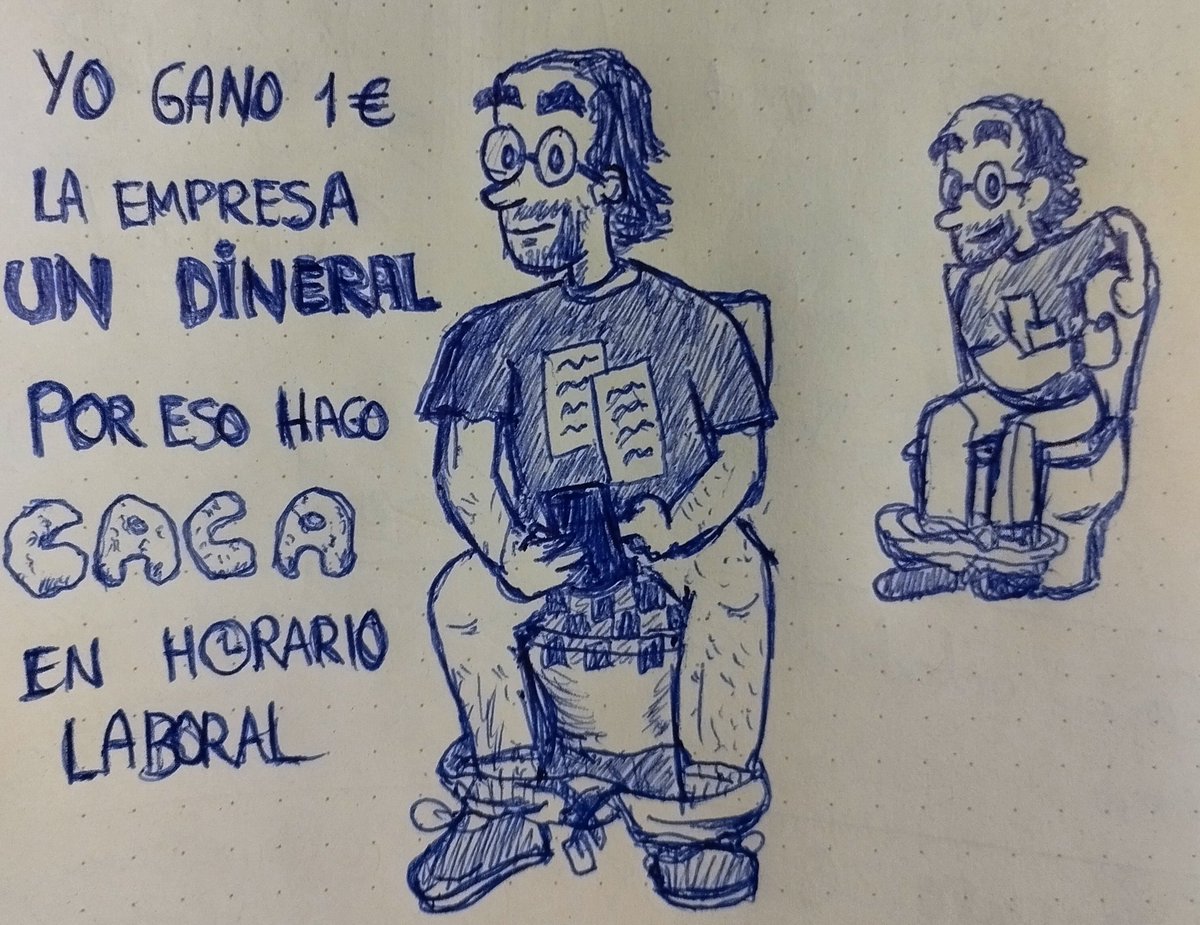 YO GANO 1€
LA EMPRESA
UN DINERAL
POR ESO HAGO
CACA
EN HORARIO
LABORAL